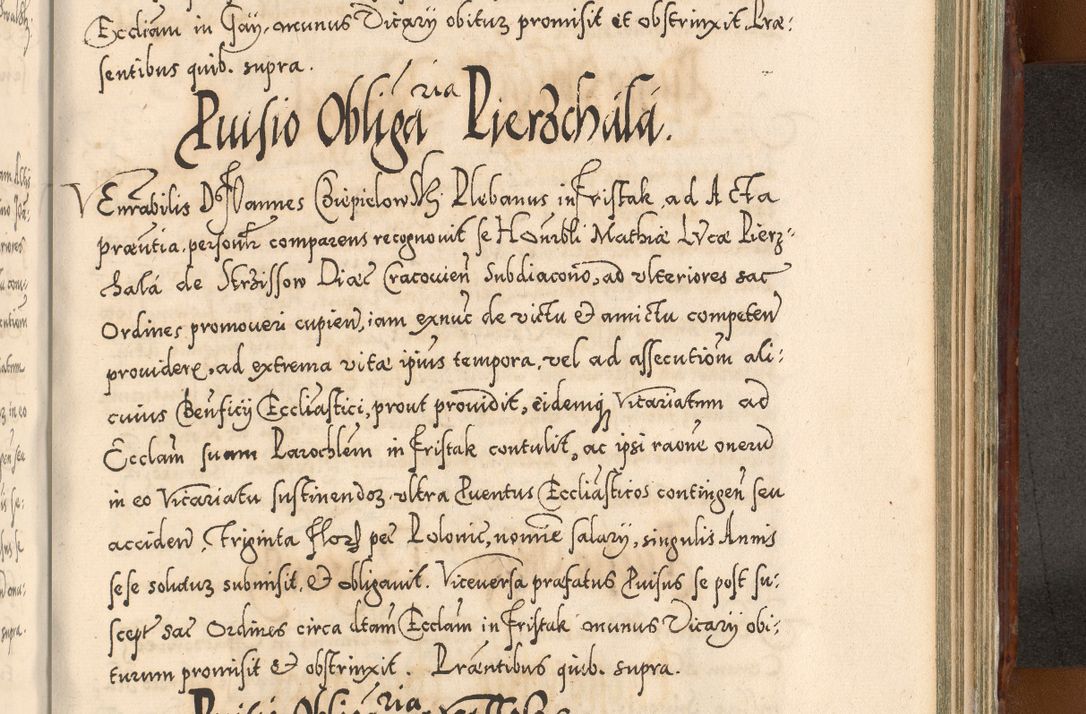 Eccliam in Gay, munus Vicarÿ obiturz promisit et obstrinxit Præ:
sentibus quib. supra.
Puisio Obligaria Pierzchala.
VEnrabilis D Joannes Cziepielowskj Plebanus in Fristak ad Acta
præntia personltr comparens recognouit se Honrbli Mathiæ Lucæ Pierz:
chalá de Strzissow Diæc Cracouien Subdiacono, ad vlteriores sac
Ordines promoueri cupien, iam exnuc de victu et amictu competen
prouidere, ad extrema vitæ ipius tempora, vel ad assecutiom ali:
cuius Benficÿ Eccliastici, prout prouidit, eidemq Vicariatum ad
Ecclam suam Parochlem in Fristak contulit, ac ipsi raone onerum
in eo Vicariatu sustinendoz vltra Puentus Eccliasticos contingen seu
acciden, Triginta Flor pec Polonic, nomine salarÿ, singulis Annis
sese soluturz submisit, et obligauit. Viceversa præfatus Puisus se post su:
scept sac Ordines circa dctam Ecclam in Fristak munus Vicarÿ obi:
turum promisit et obstrinxit. Præntibus quib. supra.
Puisio Obligaria